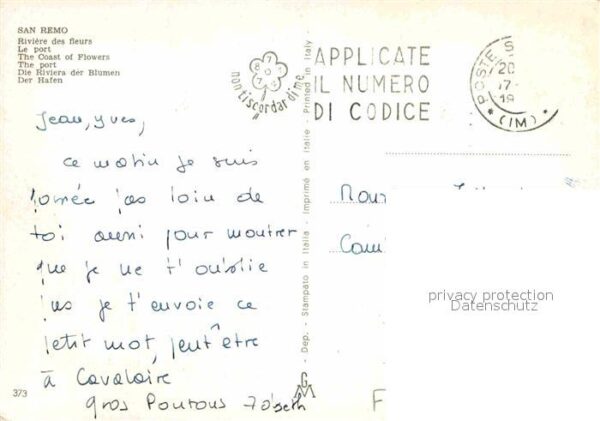 SAN REMO
Rivière des fleurs
Le port
The Coast of Flowers
The port
Die Riviera der Blumen
Der Hafen
non ti scordar di me
APPLICATE
IL NUMERO
DI CODICE
POSTE S
20
17-
19
(IM)
Jean, yves,
ce matin je suis
pas loin de
toi aussi pour montrer
que je ne t'oublie
pas je t'envoie ce
petit mot, peut être
à Cavalaire
gros
Dep. - Stampato in Italia - Imprimé en Italie - Printed in Italy
privacy protection
Datenschutz
373